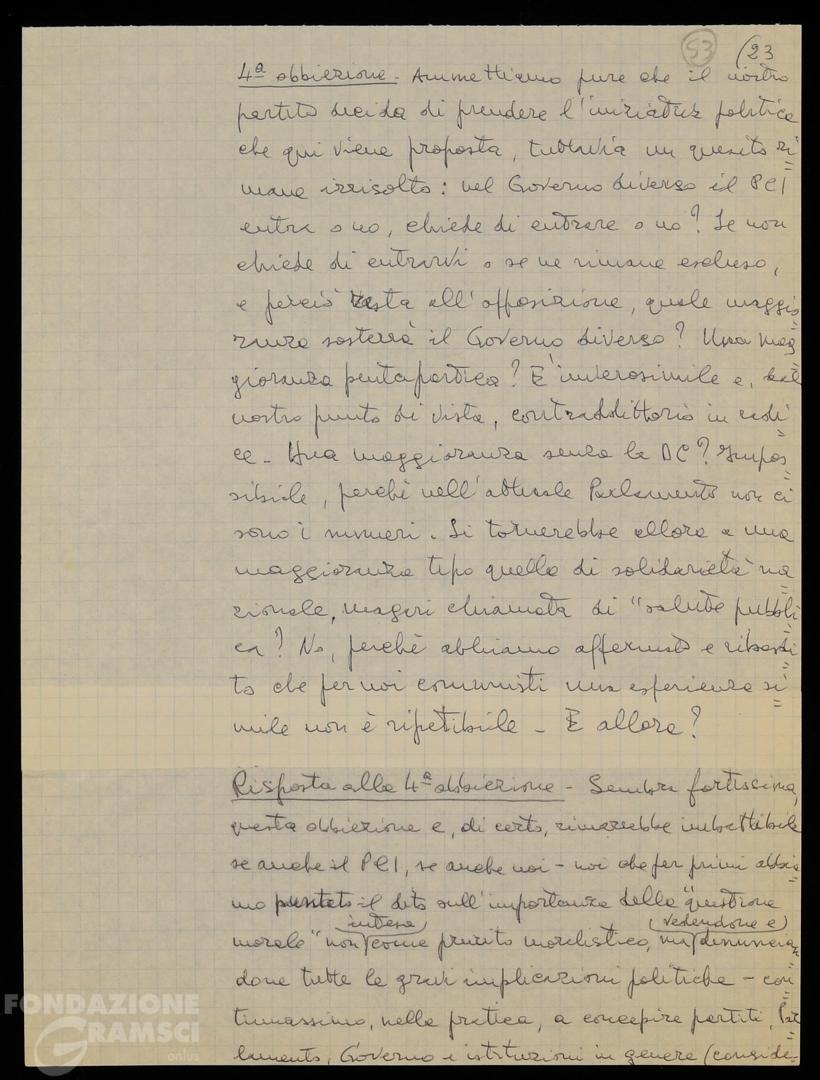 53 (23
4ª obbiezione - Ammettiamo pure che il nostro
partito decida di prendere l'iniziativa politica
che qui viene proposta, tuttavia un quesito ri=
mane irrisolto: nel Governo diverso il PCI
entra o no, chiede di entrare o no? Se non
chiede di entrarvi o se ne rimane escluso,
e perciò resta all'opposizione, quale maggio=
ranza sosterrà il Governo diverso? Una mag=
gioranza pentapartica? E' inverosimile e, dal
nostro punto di vista, contraddittorio in radi=
ce - Una maggioranza senza la DC? Impos=
sibile, perché nell'attuale Parlamento non ci
sono i numeri. Si tornerebbe allora a una
maggioranza tipo quella di solidarietà na=
zionale, magari chiamata di "salute pubbli=
ca? No, perché abbiamo affermato e ribadi=
to che per noi comunisti una esperienza si=
mile non è ripetibile - E allora?
Risposta alla 4ª obbiezione - Sembra fortissima,
questa obbiezione e, di certo, rimarrebbe imbattibile
se anche il PCI, se anche noi - noi che per primi abbia=
mo puntato il dito sull'importanza della "questione
morale" non (intesa) come prurito moralistico, ma (vedendone e) denuncian=
done tutte le gravi implicazioni politiche - con=
tinuassimo, nella pratica, a concepire partiti, Par=
lamento, Governo e istituzioni in genere (conside=
FONDAZIONE
GRAMSCI
onlus